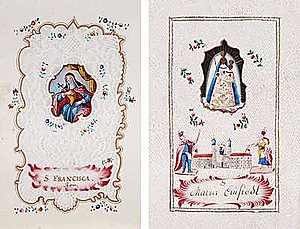 S. FRANCISCA.
Maria Einsidl